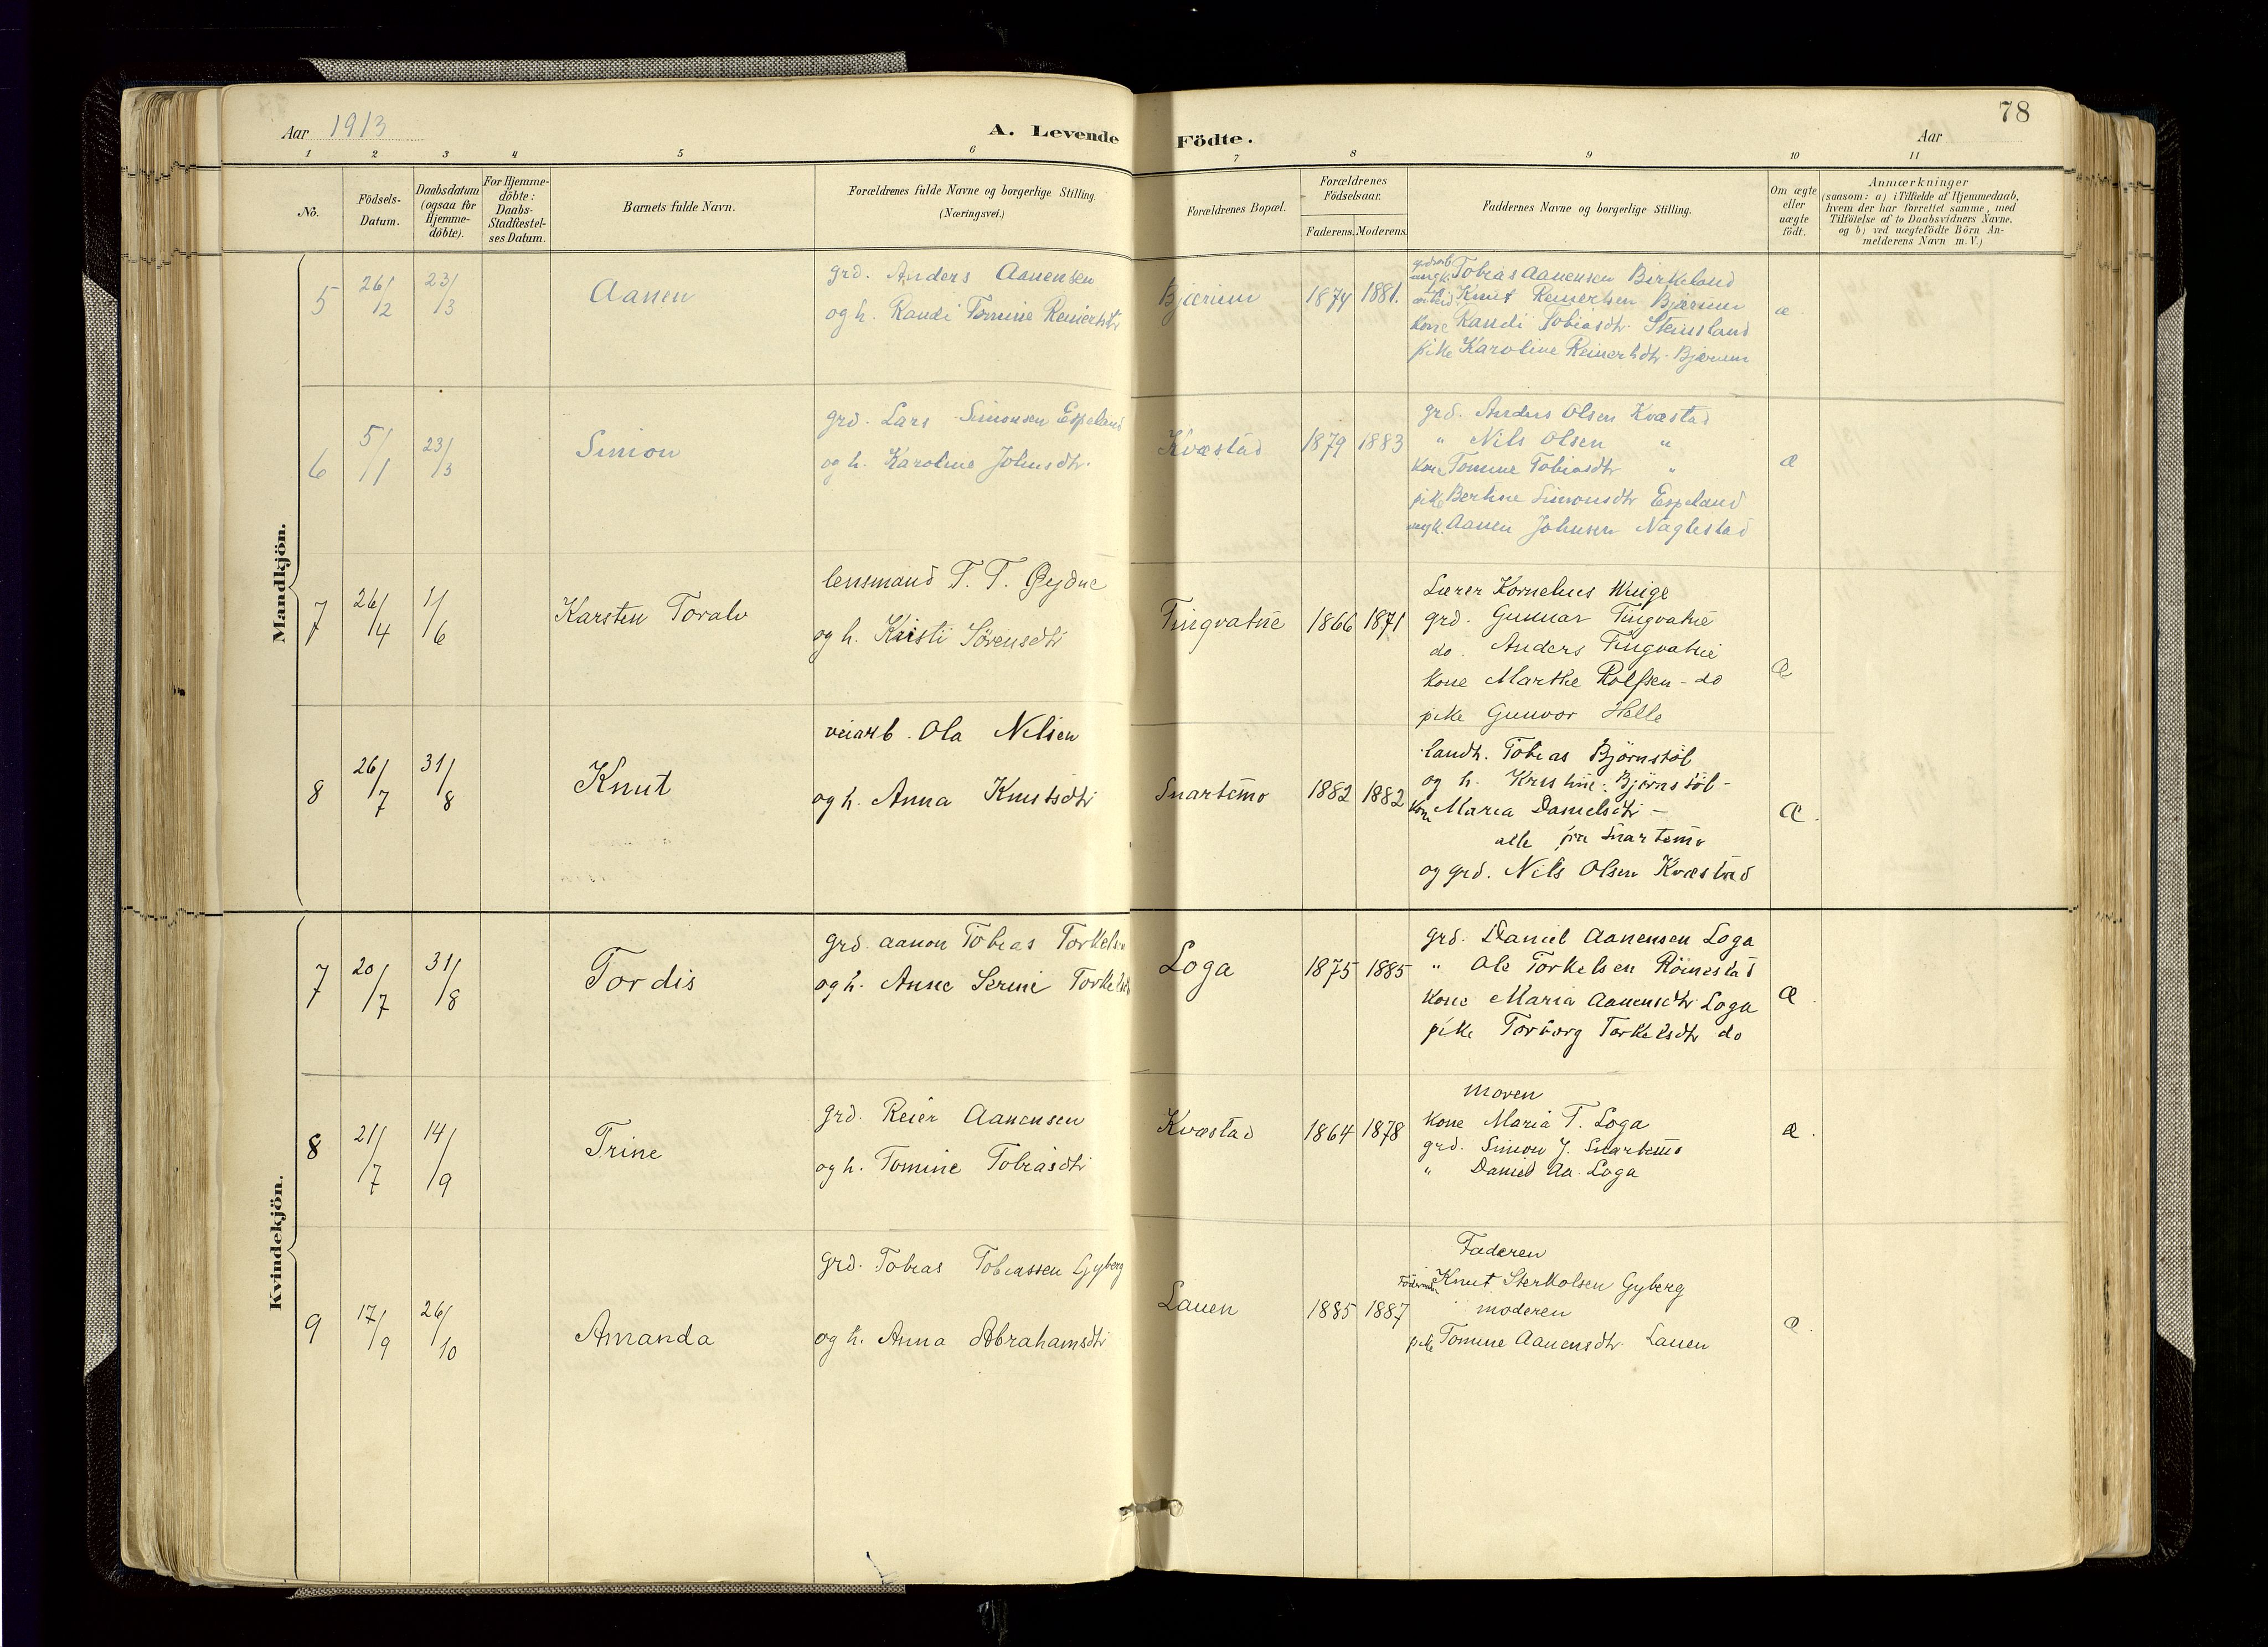 78
Aar 1913
A. Levende Födte.
Aar
1 2 3 4 5 6 7 8 9 10 11
No.
Födsels-
Datum.
Daabsdatum
(ogsaa for
Hjemme-
döbte).
For Hjemme-
döbte:
Daabs-
Stadfæstel-
ses Datum.
Barnets fulde Navn.
Forældrenes fulde Navne og borgerlige Stilling.
(Næringsvei.)
Forældrenes Bopæl.
Forældrenes
Födselsaar.
Faderens. Moderens.
Faddernes Navne og borgerlige Stilling.
Om ægte
eller
uægte
födt.
Anmærkninger
(saasom: a) i Tilfælde af Hjemmedaab,
hvem der har forrettet samme, med
Tilföielse af to Daabsvidners Navne,
og b) ved uægtefödte Börn An-
melderens Navn m. V.)
Mandkjön.
5 26/12 23/3 Aanen
grd. Anders Aanensen
og h. Randi Tomine Reinertsdtr
Bjærum 1874 1881.
Tobias Aanensen Birkeland
Knut Reinertsen Bjærum
kone Randi Tobiasdtr. Steinsland
pike Karoline Reinertsdtr. Bjærum
æ
6 5/1 23/3 Simon
grd. Lars Simonsen Espeland
og h. Karoline Johnsdtr.
Kvæstad 1879 1883
grd. Anders Olsen Kvæstad
" Nils Olsen "
kone Tomine Tobiasdtr "
pike Bertine Simonsdtr Espeland
ungk. Aanen Johnsen Naglestad
æ
7 26/4 1/6 Karsten Toralv
lensmand T. T. Øydne
og h. Kristi Sörensdtr
Tingvatne 1866 1871
Lærer Kornelius Winge
grd. Gunnar Tingvatne
do. Anders Tingvatne
kone Marthe Rolfsen - do
pike Gunvor Helle
Æ
8 26/7 31/8 Knut
veiarb. Ola Nilsen
og h. Anna Knutsdtr
Snartemo 1882 1882
landh. Tobias Björnstöl
og h. Kristine Björnstöl -
kone Maria Danielsdtr -
alle fra Snartemo
og grd. Nils Olsen Kvæstad
Æ.
Kvindekjön.
7 20/7 31/8 Tordis
grd. Aanon Tobias Torkelsen
og h. Anne Serine Torkelsdtr
Loga 1875 1885
grd. Daniel Aanensen Loga
" Ole Torkelsen Römestad
kone Maria Aanensdtr Loga
pike Torborg Torkelsdtr do
Æ
8 21/7 14/9 Trine
grd. Reier Aanensen
og h. Tomine Tobiasdtr
Kvæstad 1864 1878
moren
kone Maria T. Loga
grd. Simon J. Snartemo
" Daniel Aa. Loga
æ.
9 17/9 26/10 Amanda
grd. Tobias Tobiassen Gyberg
og h. Anna Abrahamsdtr
Lauen 1885 1887
Faderen
Knut Sterkolsen Gyberg
moderen
pike Tomine Aanensdtr. Lauen
æ.